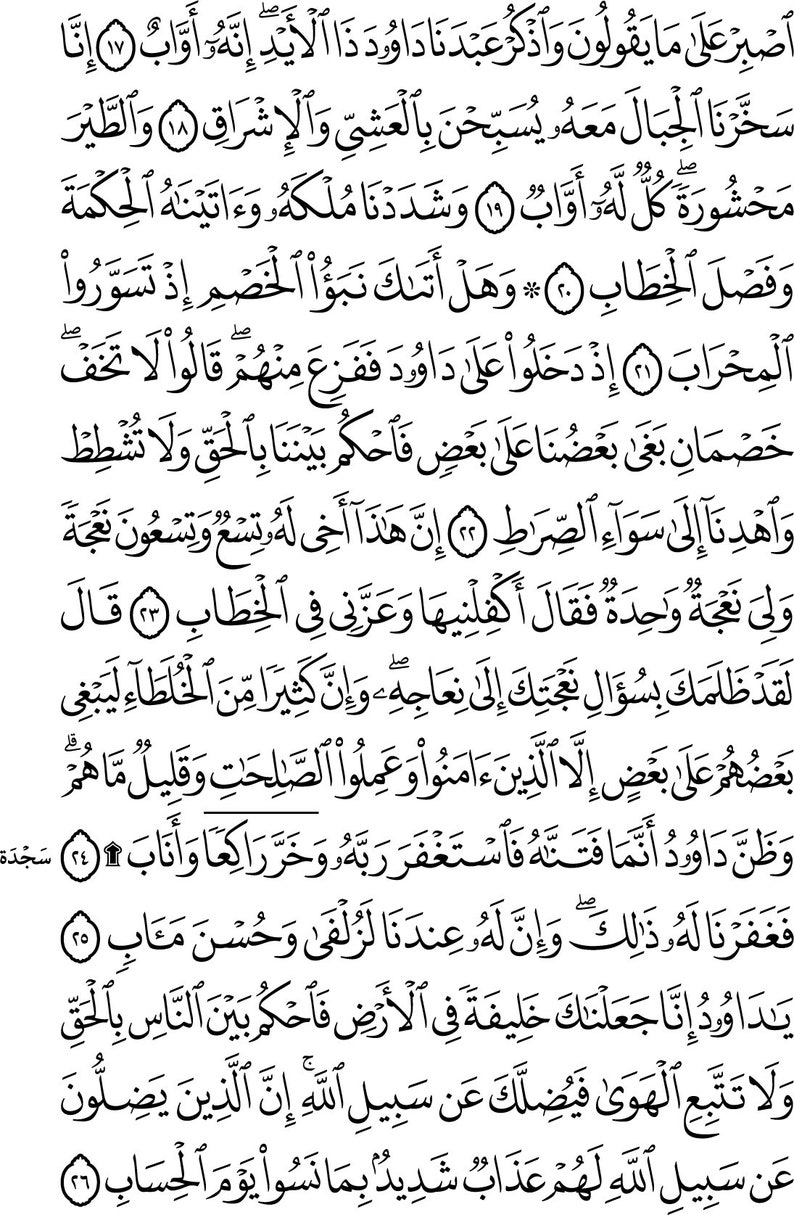 ٱصۡبِرۡ عَلَىٰ مَا يَقُولُونَ وَٱذۡكُرۡ عَبۡدَنَا دَاوُۥدَ ذَا ٱلۡأَيۡدِۖ إِنَّهُۥٓ أَوَّابٌ ١٧ إِنَّا
سَخَّرۡنَا ٱلۡجِبَالَ مَعَهُۥ يُسَبِّحۡنَ بِٱلۡعَشِيِّ وَٱلۡإِشۡرَاقِ ١٨ وَٱلطَّيۡرَ
مَحۡشُورَةٗۖ كُلّٞ لَّهُۥٓ أَوَّابٞ ١٩ وَشَدَدۡنَا مُلۡكَهُۥ وَءَاتَيۡنَٰهُ ٱلۡحِكۡمَةَ
وَفَصۡلَ ٱلۡخِطَابِ ٢٠ ۞ وَهَلۡ أَتَىٰكَ نَبَؤُاْ ٱلۡخَصۡمِ إِذۡ تَسَوَّرُواْ
ٱلۡمِحۡرَابَ ٢١ إِذۡ دَخَلُواْ عَلَىٰ دَاوُۥدَ فَفَزِعَ مِنۡهُمۡۖ قَالُواْ لَا تَخَفۡۖ
خَصۡمَانِ بَغَىٰ بَعۡضُنَا عَلَىٰ بَعۡضٖ فَٱحۡكُم بَيۡنَنَا بِٱلۡحَقِّ وَلَا تُشۡطِطۡ
وَٱهۡدِنَآ إِلَىٰ سَوَآءِ ٱلصِّرَٰطِ ٢٢ إِنَّ هَٰذَآ أَخِي لَهُۥ تِسۡعٞ وَتِسۡعُونَ نَعۡجَةٗ
وَلِيَ نَعۡجَةٞ وَٰحِدَةٞ فَقَالَ أَكۡفِلۡنِيهَا وَعَزَّنِي فِي ٱلۡخِطَابِ ٢٣ قَالَ
لَقَدۡ ظَلَمَكَ بِسُؤَالِ نَعۡجَتِكَ إِلَىٰ نِعَاجِهِۦۖ وَإِنَّ كَثِيرٗا مِّنَ ٱلۡخُلَطَآءِ لَيَبۡغِي
بَعۡضُهُمۡ عَلَىٰ بَعۡضٍ إِلَّا ٱلَّذِينَ ءَامَنُواْ وَعَمِلُواْ ٱلصَّٰلِحَٰتِ وَقَلِيلٞ مَّا هُمۡۗ
وَظَنَّ دَاوُۥدُ أَنَّمَا فَتَنَّٰهُ فَٱسۡتَغۡفَرَ رَبَّهُۥ وَخَرَّۤ رَاكِعٗاۤ وَأَنَابَ۩ ٢٤ سَجۡدَة
فَغَفَرۡنَا لَهُۥ ذَٰلِكَۖ وَإِنَّ لَهُۥ عِندَنَا لَزُلۡفَىٰ وَحُسۡنَ مَـَٔابٖ ٢٥
يَٰدَاوُۥدُ إِنَّا جَعَلۡنَٰكَ خَلِيفَةٗ فِي ٱلۡأَرۡضِ فَٱحۡكُم بَيۡنَ ٱلنَّاسِ بِٱلۡحَقِّ
وَلَا تَتَّبِعِ ٱلۡهَوَىٰ فَيُضِلَّكَ عَن سَبِيلِ ٱللَّهِۚ إِنَّ ٱلَّذِينَ يَضِلُّونَ
عَن سَبِيلِ ٱللَّهِ لَهُمۡ عَذَابٞ شَدِيدُۢ بِمَا نَسُواْ يَوۡمَ ٱلۡحِسَابِ ٢٦